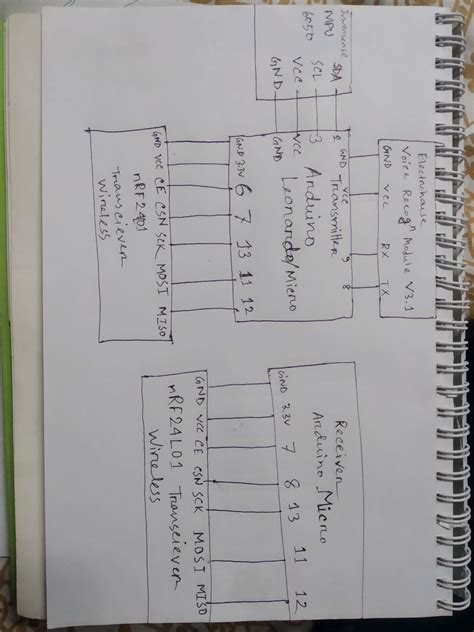 Invensense
MPU
6050
SDA
SCL
VCC
GND
Elechouse
Voice Recogn Module V3.1
GND VCC RX TX
2 GND VCC 9 8
3 Transmitter
VCC Arduino
GND Leonardo/Micro
GND 3.3V 6 7 13 11 12
GND VCC CE CSN SCK MOSI MISO
nRF2401
Transciever
Wireless
Receiver
Arduino Micro
GND 3.3V 7 8 13 11 12
GND VCC CE CSN SCK MOSI MISO
nRF24L01 Transciever
Wireless